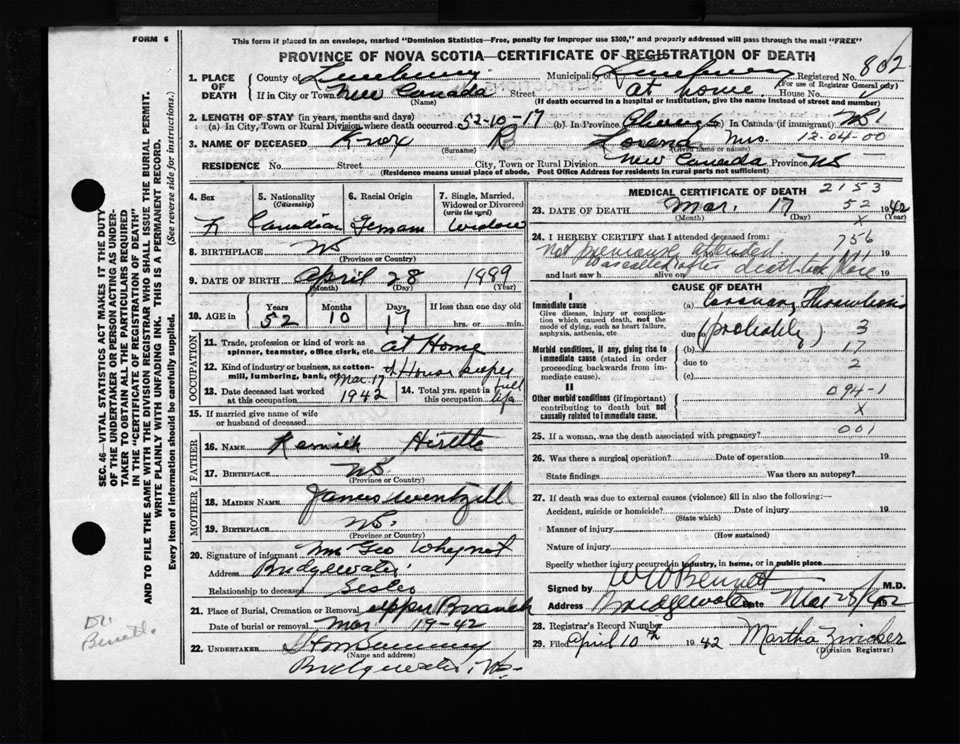 FORM 6
This form if placed in an envelope, marked "Dominion Statistics—Free, penalty for improper use $300," and properly addressed will pass through the mail "FREE"
PROVINCE OF NOVA SCOTIA—CERTIFICATE OF REGISTRATION OF DEATH
1. PLACE OF DEATH County of Lunenburg Municipality of Lunenburg Registered No. 802
(For use of Registrar General only)
If in City or Town New Canada Street at home House No.
(Name) (If death occurred in a hospital or institution, give the name instead of street and number)
2. LENGTH OF STAY (in years, months and days)
(a) In City, Town or Rural Division where death occurred 52-10-17 (b) In Province Always (c) In Canada (if immigrant) NS 1
3. NAME OF DECEASED Knox R Lorena Mrs. 12-04-00
(Surname) (Given name or names)
RESIDENCE No. Street City, Town or Rural Division New Canada Province NS
(Residence means usual place of abode, Post Office Address for residents in rural parts not sufficient)
4. Sex F
5. Nationality (Citizenship) Canadian
6. Racial Origin German
7. Single, Married, Widowed or Divorced (write the word) Widow
8. BIRTHPLACE NS
(Province or Country)
9. DATE OF BIRTH April 28 1889
(Month) (Day) (Year)
10. AGE in Years 52 Months 10 Days 17 If less than one day old hrs. or min.
OCCUPATION
11. Trade, profession or kind of work as spinner, teamster, office clerk, etc. at Home
12. Kind of industry or business, as cotton-mill, lumbering, bank, etc. Housekeeper
13. Date deceased last worked at this occupation Mar 17 1942
14. Total yrs. spent in this occupation full life
15. If married give name of wife or husband of deceased
FATHER
16. NAME Hirtle
17. BIRTHPLACE NS
(Province or Country)
MOTHER
18. MAIDEN NAME Wentzell
19. BIRTHPLACE NS.
(Province or Country)
20. Signature of informant Mrs Geo Whynot
Address Bridgewater
Relationship to deceased Sister
21. Place of Burial, Cremation or Removal Upper Branch
Date of burial or removal Mar 19-42
22. UNDERTAKER
Bridgewater, NS-
MEDICAL CERTIFICATE OF DEATH 2153
23. DATE OF DEATH Mar. 17 52 1942
(Month) (Day) (Year)
x
24. I HEREBY CERTIFY that I attended deceased from: 756
Not attended 19
Was called after death took place
and last saw h alive on 19
CAUSE OF DEATH
I
Immediate cause
Give disease, injury or complication which caused death, not the mode of dying, such as heart failure, asphyxia, asthenia, etc.
(a) Coronary Thrombosis
due to (probably) 3
Morbid conditions, if any, giving rise to immediate cause (stated in order proceeding backwards from immediate cause).
(b) 17
due to 2
(c)
II
Other morbid conditions (if important) contributing to death but not causally related to immediate cause.
094-1
x
25. If a woman, was the death associated with pregnancy? 001
26. Was there a surgical operation? Date of operation 19
State findings Was there an autopsy?
27. If death was due to external causes (violence) fill in also the following:—
Accident, suicide or homicide? Date of injury 19
(State which)
Manner of injury
(How sustained)
Nature of injury
Specify whether injury occurred in industry, in home, or in public place
Signed by W W Bennett M.D.
Address Bridgewater Date Mar 28/1942
28. Registrar's Record Number
29. Filed April 10th 1942 Martha Zwicker
(Division Registrar)
SEC. 46—VITAL STATISTICS ACT MAKES IT THE DUTY OF THE UNDERTAKER OR PERSON ACTING AS UNDERTAKER TO OBTAIN ALL THE PARTICULARS REQUIRED IN THE "CERTIFICATE OF REGISTRATION OF DEATH"
AND TO FILE THE SAME WITH THE DIVISION REGISTRAR WHO SHALL ISSUE THE BURIAL PERMIT.
WRITE PLAINLY WITH UNFADING INK. THIS IS A PERMANENT RECORD.
Every item of information should be carefully supplied. (See reverse side for instructions.)
Dr.
Bennett.